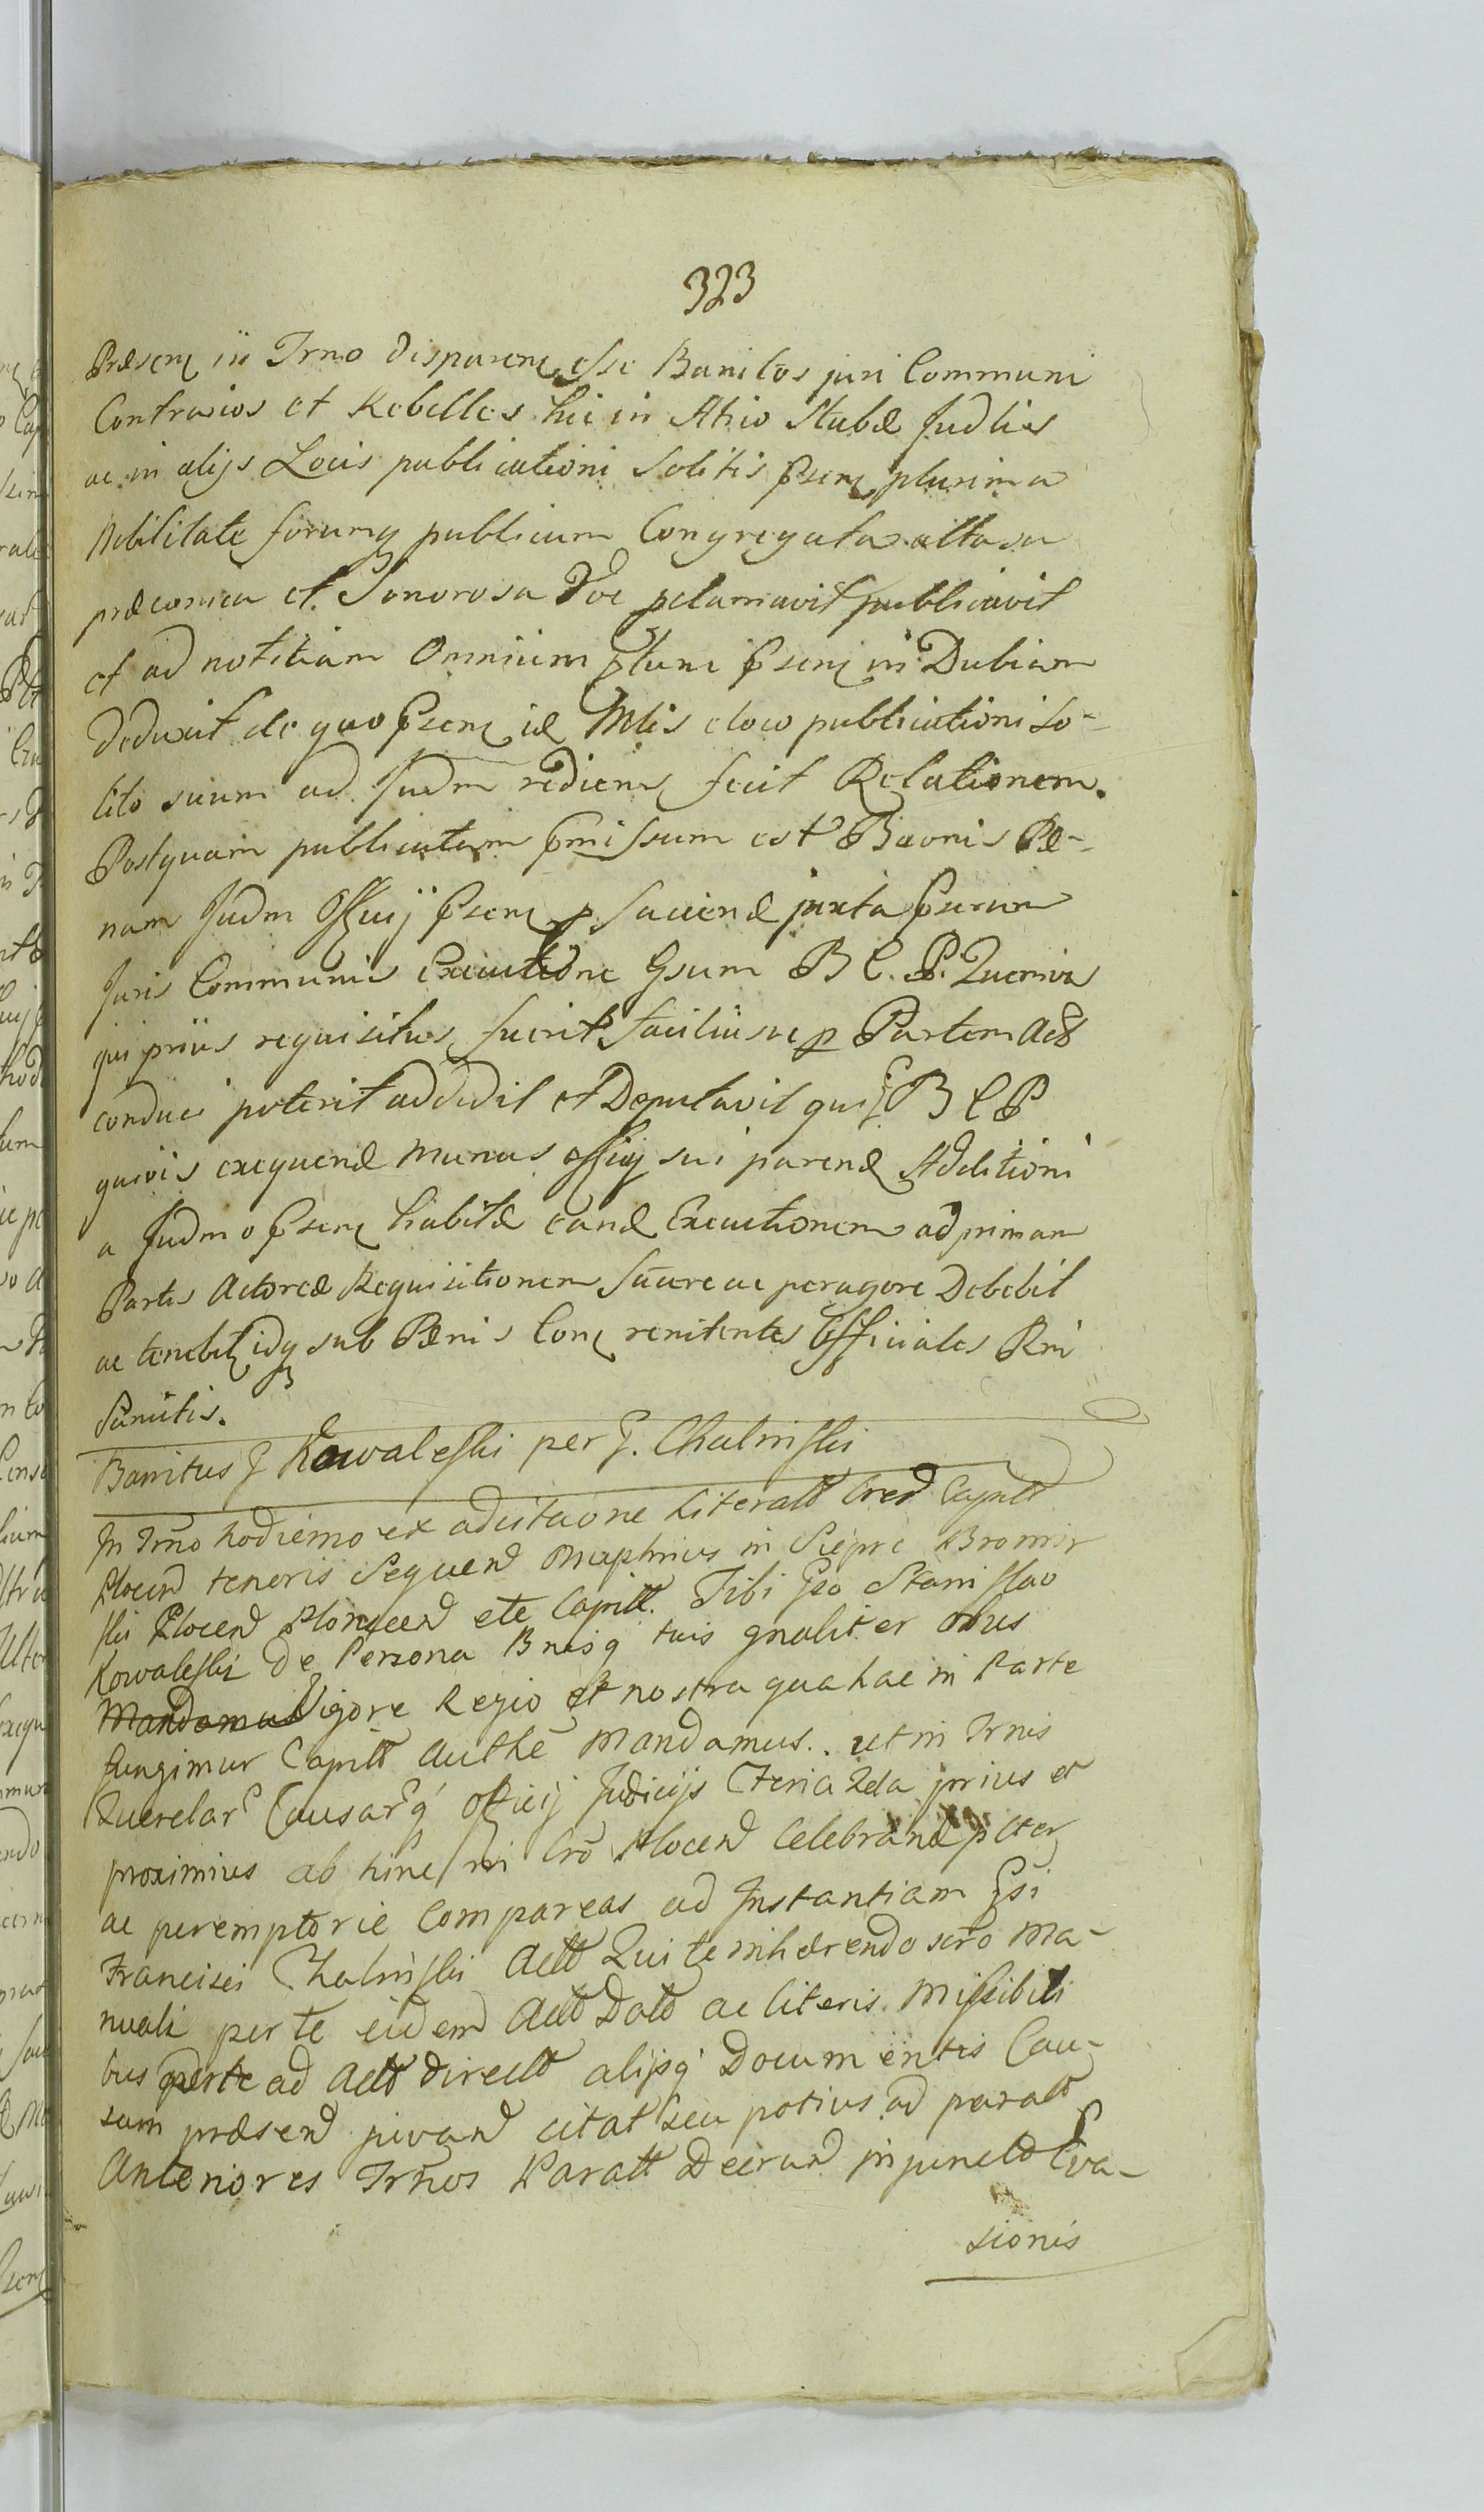 323
Præsen in Trno disparen esse Banitos juri Communi
Contrarios et Rebelles hic in Atrio Stubæ Judlis
ac in alijs Locis publicationi Solitis Psen plurima
Nobilitate forumq publicum Congregata alta
præconica et Sonorosa Voe pclamavit publicavit
et ad notitiam Omnium ptune Psen in Dubiam
Deduxit de quo Psen id Mlis eloco publicationi so-
lito suum ad Judm rediens fecit Relationem.
Postquam publicatum pmissum est Baonis Pæ-
nam Judm Officij Psen p faciend juxta Pserum
Juris Communis Executione Gsum B C. P. Quemvis
qui prius requisitus fuerit faciliusve p Partem Act
conduci poterit addidit et Deputavit qui G B C P
quivis exequend munus officij sui parend Additioni
a Judmo Psen habitæ eand Executionem ad primam
Partis Actoreæ Requisitionem facere ac peragere Debebit
ac tenebit idq sub Pænis Con renitentes Officiales Rni
Sancitis.
Banitus G Kowaleski per G. Chalinski
In Trno hodierno ex adcitaone Literali Cred Captt
Plocen tenoris Sequen Onuphrius in Sieprc Bromir
ski Plocen Plonscen etc Capitt. Tibi Gso Stanislao
Kowaleski De Persona Bnisq tuis gnaliter Obus
Mandamus Vigore Regio et nostra qua hac in Parte
fungimur Captt Authe Mandamus. ut in Trnis
Querelar Causarq Officij Judicijs Feria 2da prius et
proximius ab hinc in Cro Plocen Celebrand pliter
ac peremptorie Compareas ad Instantiam Gsi
Francisci Chalinski Act Qui te inhærendo scro Ma-
nuali per te eidem Act Dato ac literis Missibili
bus perte ad Act direct alijsq Documentis Cau-
sam præsen juvan citat seu potius ad parat
Anteriores Trnos Paratt Decrun injunctt Eva-
sionis